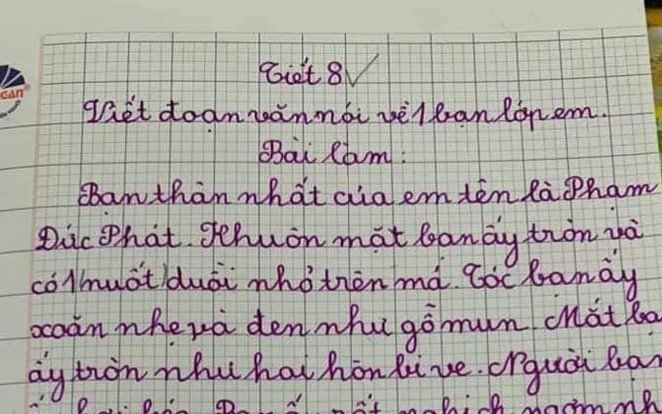 Tiết 8
Viết đoạn văn nói về 1 bạn lớp em.
Bài làm:
Bạn thân nhất của em tên là Phạm
Đức Phát. Khuôn mặt bạn ấy tròn và
có 1 nuốt duồi nhỏ trên má. Tóc bạn ấy
xoăn nhẹ và đen như gỗ mun. Mắt bạ
ấy tròn như hai hòn bi ve. Người bạn